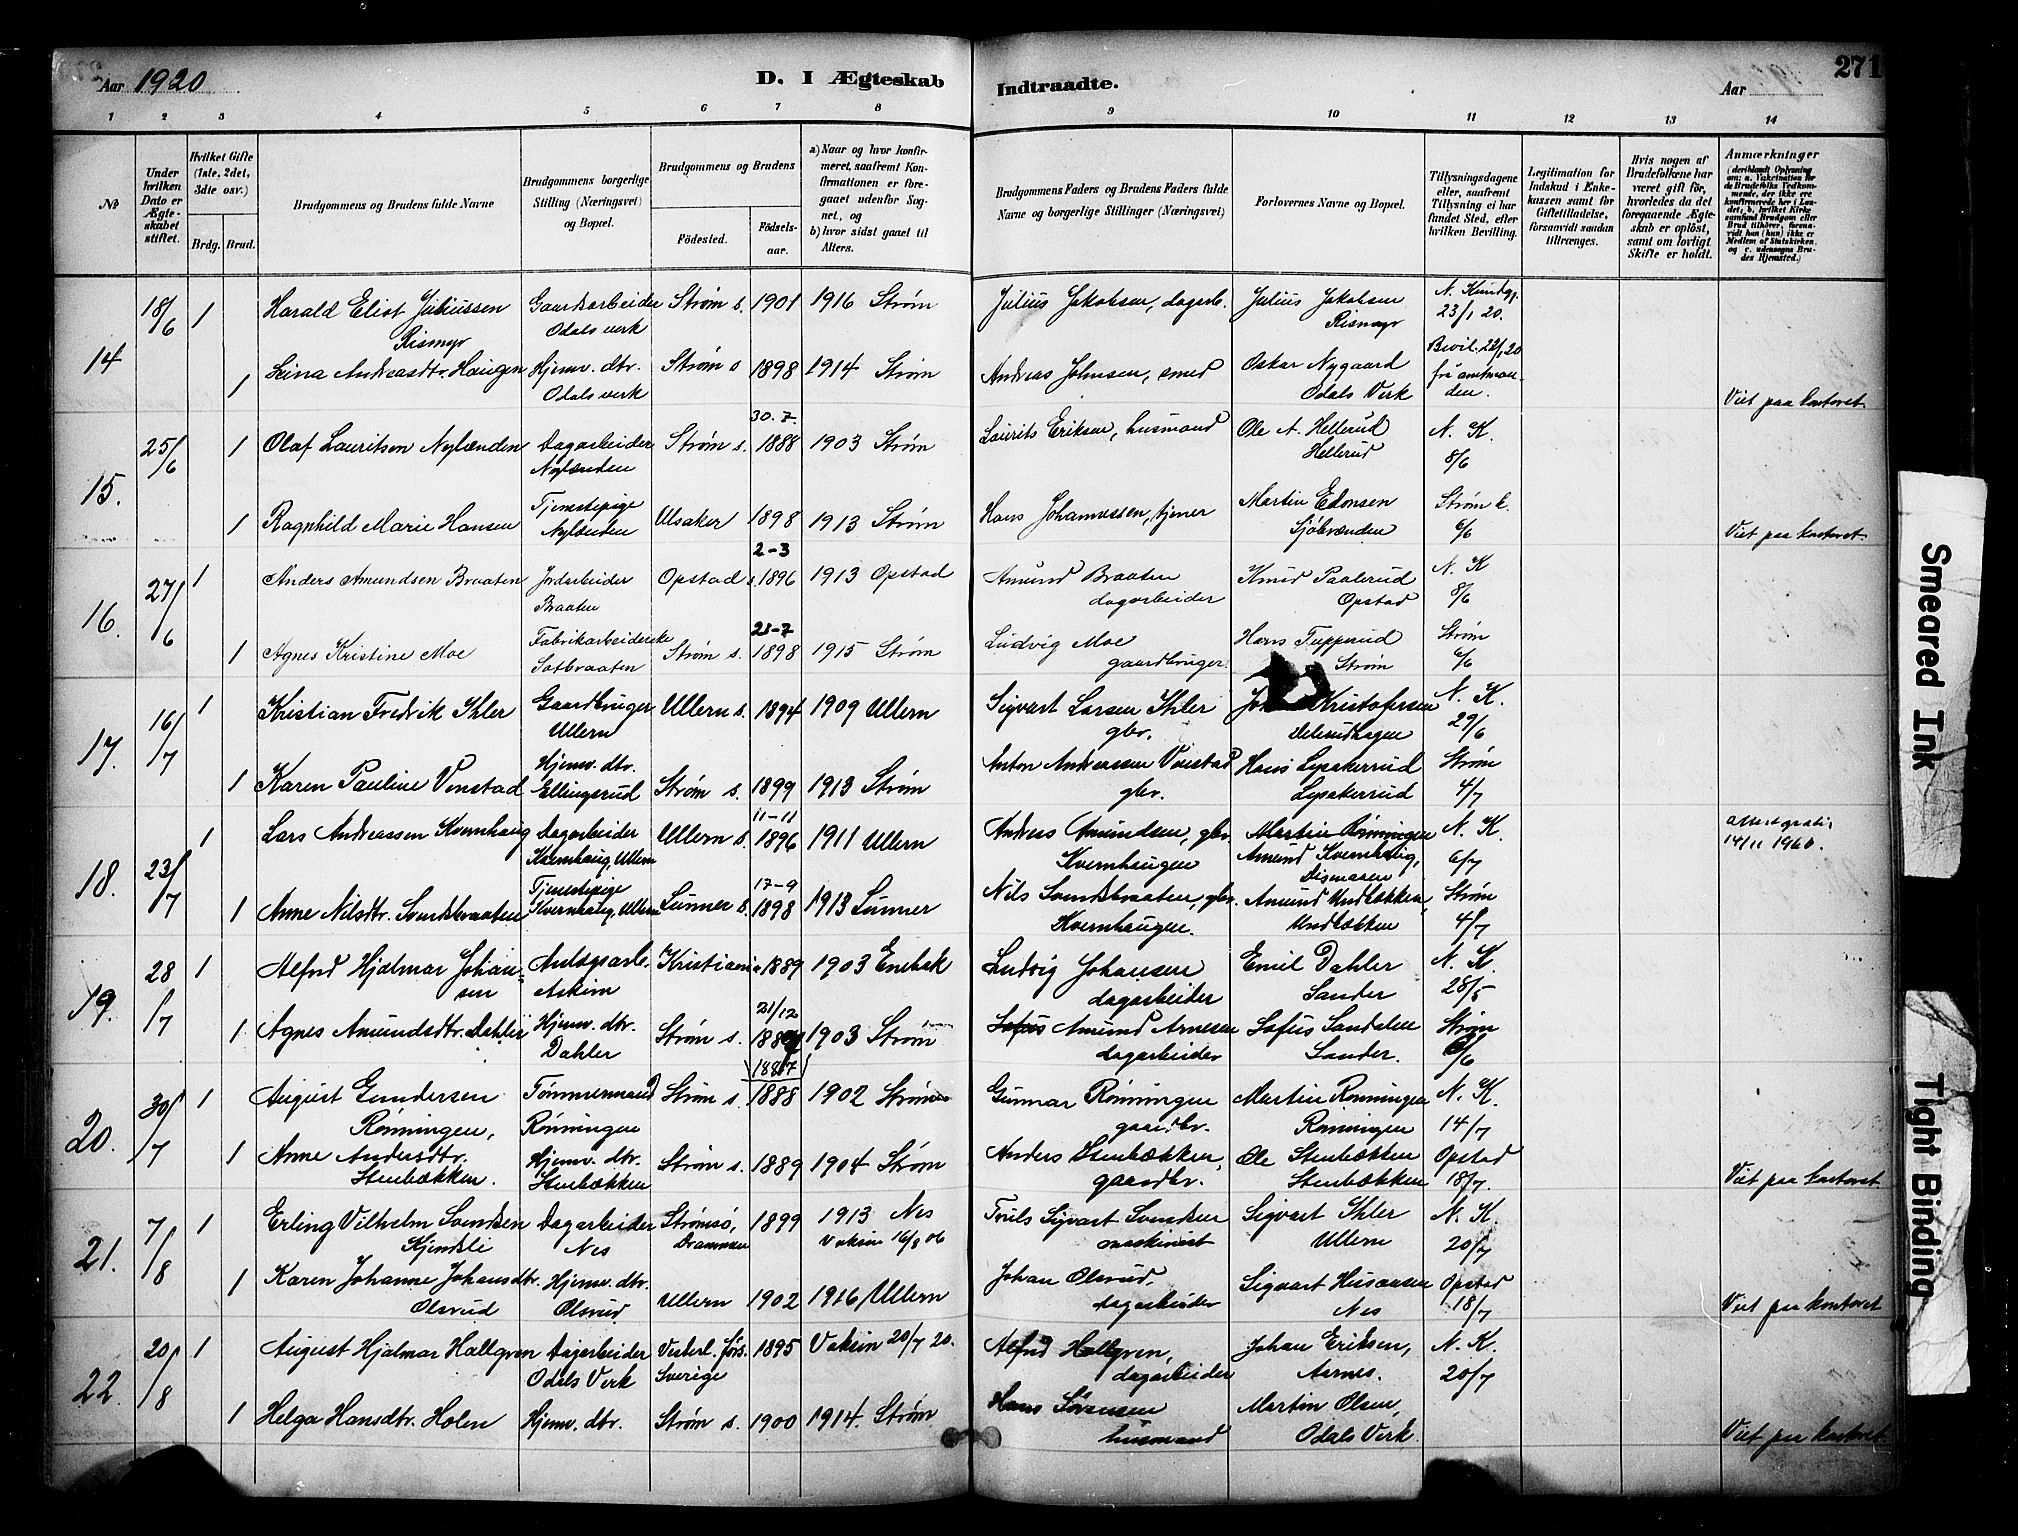 Aar 1920
D. I Ægteskab Indtraadte.
Aar
271
1 2 3 4 5 6 7 8 9 10 11 12 13 14
№
Under hvilken Dato er Ægteskabet stiftet.
Hvilket Gifte (1ste, 2det, 3die osv.)
Brdg. Brud.
Brudgommens og Brudens fulde Navne
Brudgommens borgerlige Stilling (Næringsvei) og Bopæl.
Brudgommens og Brudens
Födested. Födselsaar.
a) Naar og hvor konfirmeret, saafremt Konfirmationen er foregaaet udenfor Sognet, og
b) hvor sidst gaaet til Alters.
Brudgommens Faders og Brudens Faders fulde Navne og borgerlige Stillinger (Næringsvei)
Forlovernes Navne og Bopæl.
Tillysningsdagene eller, saafremt Tillysning ei har fundet Sted, efter hvilken Bevilling.
Legitimation for Indskud i Enkekassen samt for Giftetilladelse, forsaavidt saadan tiltrænges.
Hvis nogen af Brudefolkene har været gift för, hvorledes da det foregaaende Ægteskab er oplöst, samt om lovligt Skifte er holdt.
Anmærkninger
14 18/6 1 Harald Eliot Juliussen Rismyr Gaardsarbeider Odals verk Strøm s. 1901 1916 Strøm Julius Jakobsen, dagarb. Julius Jakobsen Rismyr N. Kundgj. 23/1 20.
1 Leina Andreasdtr. Haugen Hjemv. dtr. Odals verk Strøm s 1898 1914 Strøm Andreas Johnsen, smed Oskar Nygaard Odals Verk Bevil. 22/1 20 fra amtmanden. Viet paa kontoret
15. 25/6 1 Olaf Lauritsen Nylænden Dagarbeider Nylænden Strøm s. 30.7. 1888 1903 Strøm Laurits Eriksen, husmand Ole A. Hellerud Hellerud N. K. 8/6
1 Ragnhild Marie Hansen Tjenestepige Nylænden Ulsaker 1898 1913 Strøm Hans Johannessen, tjener Martin Edonsen Sjöbrænden Strøm k. 6/6 Viet paa kontoret
16. 27/6 1 Anders Amundsen Braaten Jordarbeider Braaten Opstad s. 2-3 1896 1913 Opstad Amund Braaten dagarbeider Knud Paalerud Opstad N. K 8/6
1 Agnes Kristine Moe Fabrikarbeiderske Satbraaten Strøm s. 21-7 1898 1915 Strøm Ludvig Moe gaardbruger Hans Tupperud Strøm Strøm 6/6
17. 16/7 1 Kristian Fredrik Ihler Gaardbruger Ullern Ullern s. 1894 1909 Ullern Sigvart Larsen Ihler gbr. Kristofersen N. K. 29/6
1 Karen Pauline Vonstad Hjemv. dtr. Ellingsrud Strøm s. 1899 1913 Strøm Anton Andreassen Vonstad gbr. Hans Lysakerrud Lysakerrud Strøm 4/7
18. 23/7 1 Lars Andreassen Kvernhaug Dagarbeider Kvernhaug, Ullern Ullern s. 11-11 1896 1911 Ullern Andreas Amundsen, gbr. Kvernhaugen Martin Rønningen Amund Kvernhaug, Dismasen N. K. 6/7 attest gratis 14/11 1960.
1 Anne Nilsdtr. Svendsbraaten Tjenestepige Kvernhaug, Ullern Lunner s. 17-9 1898 1913 Lunner Nils Svendsbraaten, gbr. Kvernhaugen. Amund Undbækken, Undbækken Strøm 4/7
19. 28/7 1 Alfred Hjalmar Johansen Anlægsarb. Askim Kristiania 1889 1903 Enebak Ludvig Johansen dagarbeider Emil Dahler Sander N. K. 28/5
1 Agnes Amundsdtr. Dahler Hjemv. dtr. Dahler Strøm s. 21/12 1887 (1887) 1903 Strøm Sofus Amund Arnesen dagarbeider Sofus Sandalen Sander. Strøm 6/6
20. 30/7 1 August Gundersen Rønningen, Tømmermand Rønningen Strøm s. 1888 1902 Strøm Gunnar Rønningen gaardbr. Martin Rønningen Rønningen N. K. 14/7
1 Anne Andersdtr. Stenbækken. Hjemv. dtr. Stenbækken Strøm s. 1889 1904 Strøm Anders Stenbækken, gaardbr. Ole Stenbækken Stenbækken Opstad 18/7 Viet paa kontoret
21. 7/8 1 Erling Vilhelm Svendsen Kjendsli Dagarbeider Nes Strømsø, Drammen 1899 1913 Nes Vaksin 16/8 06 Truls Sigvart Svendsen maskinist Sigvart Ihler Ullern N. K. 20/7
1 Karen Johanne Johansdtr. Olsrud Hjemv. dtr. Olsrud Ullern 1902 1916 Ullern Johan Olsrud, dagarbeider Sigvart Nes Opstad 18/7 Viet paa kontoret
22. 20/8 1 August Hjalmar Hallgren Dagarbeider Odals Verk Sverige 1895 Vaksin 20/7 20. Alfred Hallgren, dagarbeider Johan Eriksen, Aarnes. N. K. 20/7
1 Helga Hansdtr. Holen Hjemv. dtr. Strøm s. 1900 1914. Strøm Hans Sørensen husmand Martin Olsen, Odals Verk. Viet paa kontoret
Smeared Ink
Tight Binding